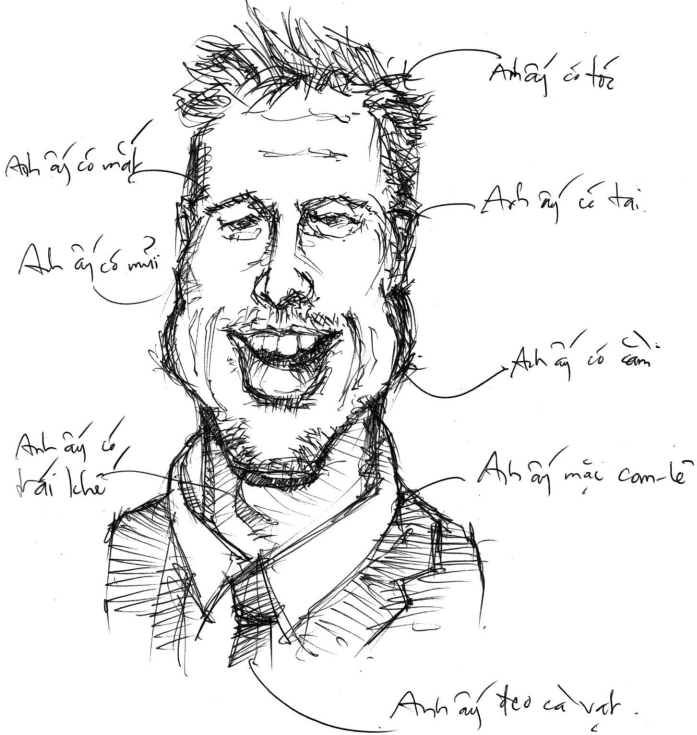 Anh ấy có tóc
Anh ấy có mắt
Anh ấy có tai.
Anh ấy có mũi
Anh ấy có cằm
Anh ấy có
trái khế
Anh ấy mặc com-lê
Anh ấy đeo cà vạt.